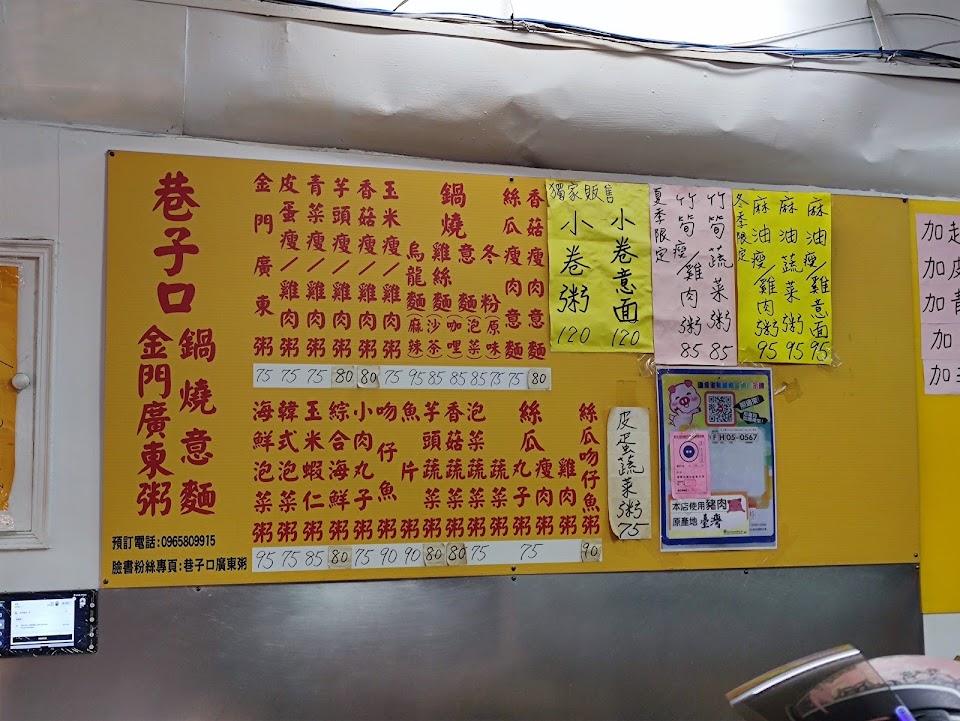 巷子口
鍋燒意麵
金門廣東粥
預訂電話:0965809915
臉書粉絲專頁:巷子口廣東粥
金門廣東粥 75
皮蛋瘦/雞肉粥 75
青菜瘦/雞肉粥 75
芋頭瘦/雞肉粥 80
香菇瘦/雞肉粥 80
玉米瘦/雞肉粥 75
鍋燒
烏龍麵
雞絲麵
意麵
冬粉
(麻辣 95
沙茶 85
(咖哩 85
(泡菜 85
(原味 75
絲瓜瘦肉意麵 75
香菇瘦肉意麵 80
海鮮泡菜粥 95
韓式泡菜粥 75
玉米蝦仁粥 85
綜合海鮮粥 80
小肉丸子粥 75
吻仔魚粥 90
魚片粥 90
芋頭蔬菜粥 80
香菇蔬菜粥 80
泡菜蔬菜粥 75
蔬菜粥
絲瓜
丸子粥
瘦肉粥 75
雞肉粥
絲瓜吻仔魚粥 90
獨家販售
小卷粥 120
小卷意面 120
夏季限定
竹筍瘦/雞肉粥 85
竹筍蔬菜粥 85
冬季限定
麻油瘦/雞肉粥 95
麻油蔬菜粥 95
麻油瘦/雞意面 95
皮蛋蔬菜粥 75
FH05-0567
本店使用豬肉
原產地 臺灣
加
加皮
加青
加
加